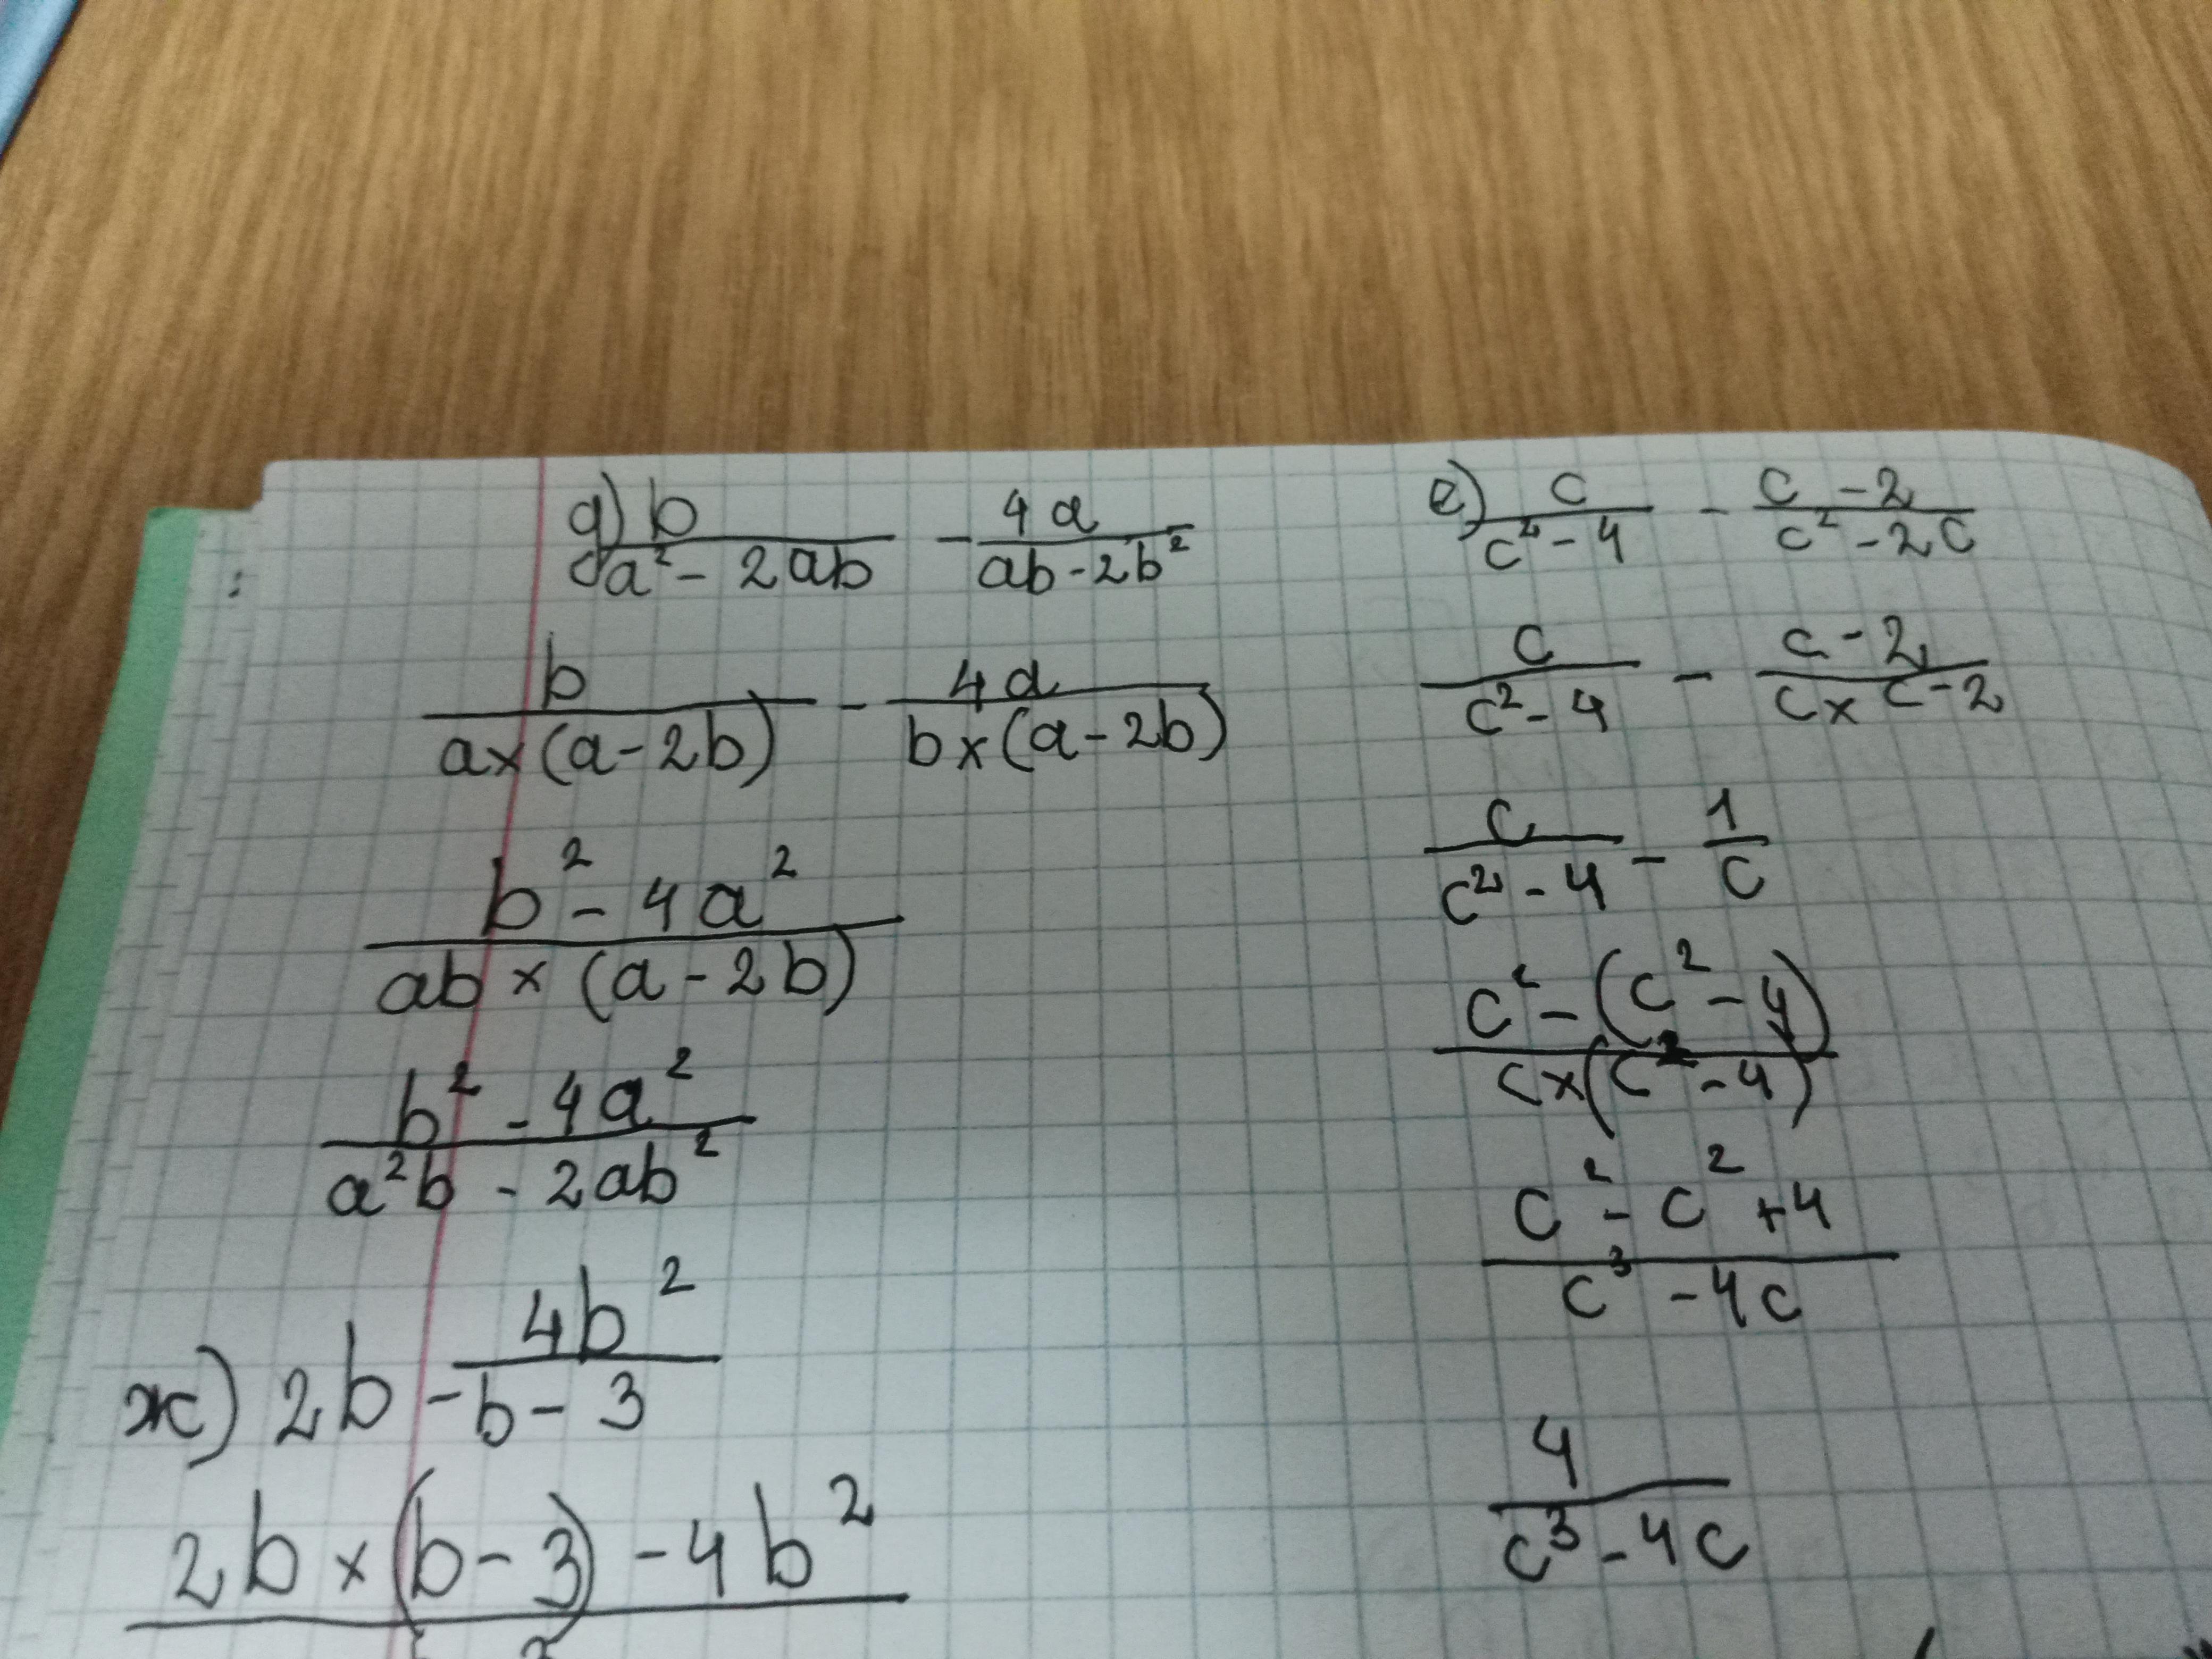 д) b/(a² - 2ab) - 4a/(ab - 2b²)
b/(a×(a-2b)) - 4a/(b×(a-2b))
(b² - 4a²)/(ab×(a-2b))
(b² - 4a²)/(a²b - 2ab²)
ж) 2b - 4b²/(b-3)
2b×(b-3) - 4b²
е) c/(c²-4) - (c-2)/(c²-2c)
c/(c²-4) - (c-2)/(c×c-2)
c/(c²-4) - 1/c
(c²-(c²-4))/(c×(c²-4))
(c²-c²+4)/(c³-4c)
4/(c³-4c)